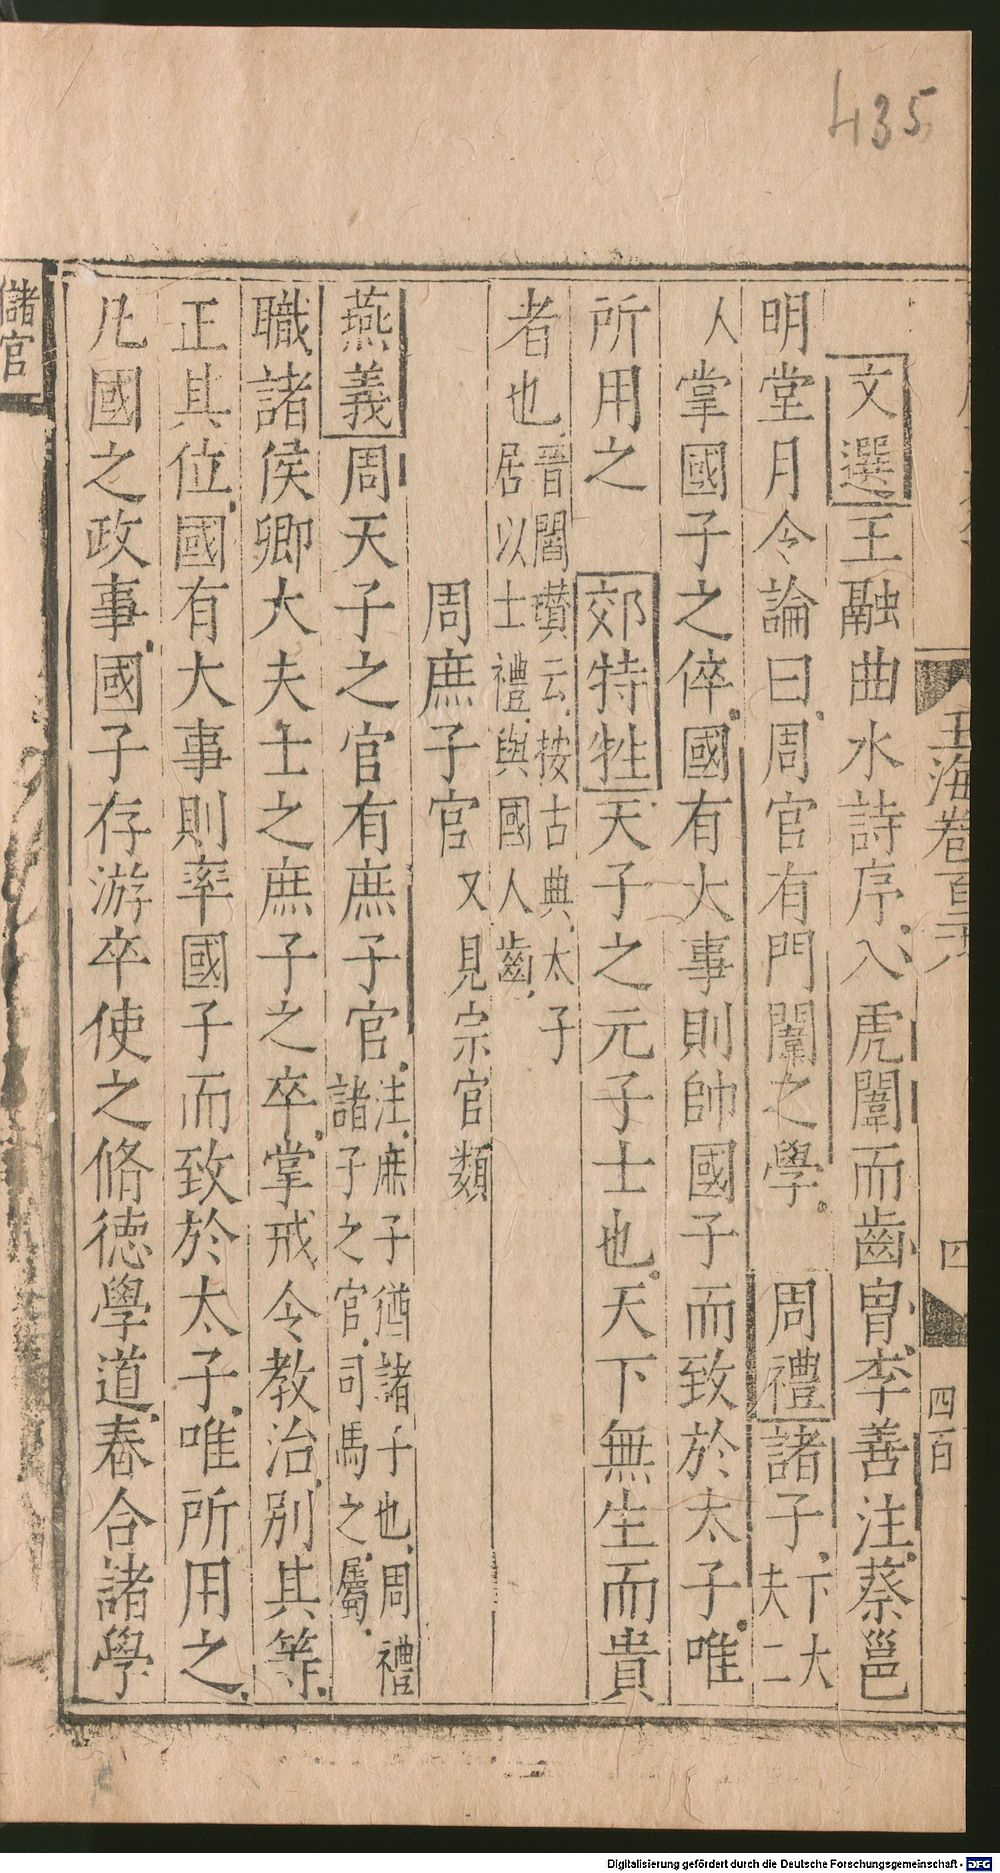 435
玉海卷百二八
四
四百
文選王融曲水詩序入虎闈而齒胄李善注蔡邕
明堂月令論曰周官有門闈之學 周禮諸子下大夫二
人掌國子之倅國有大事則帥國子而致於太子唯
所用之 郊特牲天子之元子士也天下無生而貴
者也晉閻瓚云按古典太子居以士禮與國人齒
周庶子官又見宗官類
燕義周天子之官有庶子官注庶子猶諸子也周禮諸子之官司馬之屬
職諸侯卿大夫士之庶子之卒掌戒令教治別其等
正其位國有大事則率國子而致於太子唯所用之
凡國之政事國子存游卒使之脩德學道春合諸學
儲官
Digitalisierung gefördert durch die Deutsche Forschungsgemeinschaft - DFG